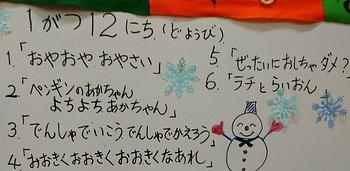 1がつ12にち(どようび)
1.「おやおや、おやさい」
2.「ペンギンのあかちゃん
よちよちあかちゃん」
3.「でんしゃでいこうでんしゃでかえろう」
4.「おおきくおおきくおおきくなあれ」
5.「ぜったいにおしちゃダメ?」
6.「ラチとらいおん」